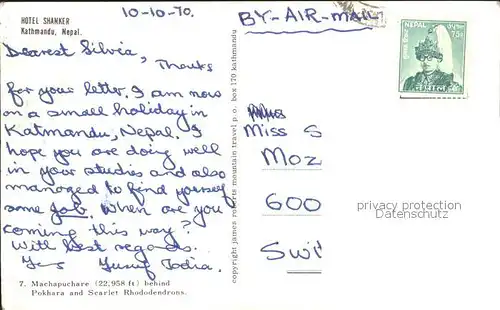 HOTEL SHANKER
Kathmandu, Nepal.
10-10-70.
Dearest Silvia,
Thanks
for your letter. I am now
on a small holiday in
Katmandu, Nepal. I
hope you are doing well
in your studies and also
managed to find yourself
some job. When are you
coming this way?
With best regards.
Yrs Yusuf Todia.
7. Machapuchare (22,958 ft) behind
Pokhara and Scarlet Rhododendrons.
copyright james roberts mountain travel p.o. box 170 kathmandu
BY-AIR-MAIL
NEPAL
Miss S
Moz
600
Swi
privacy protection
Datenschutz